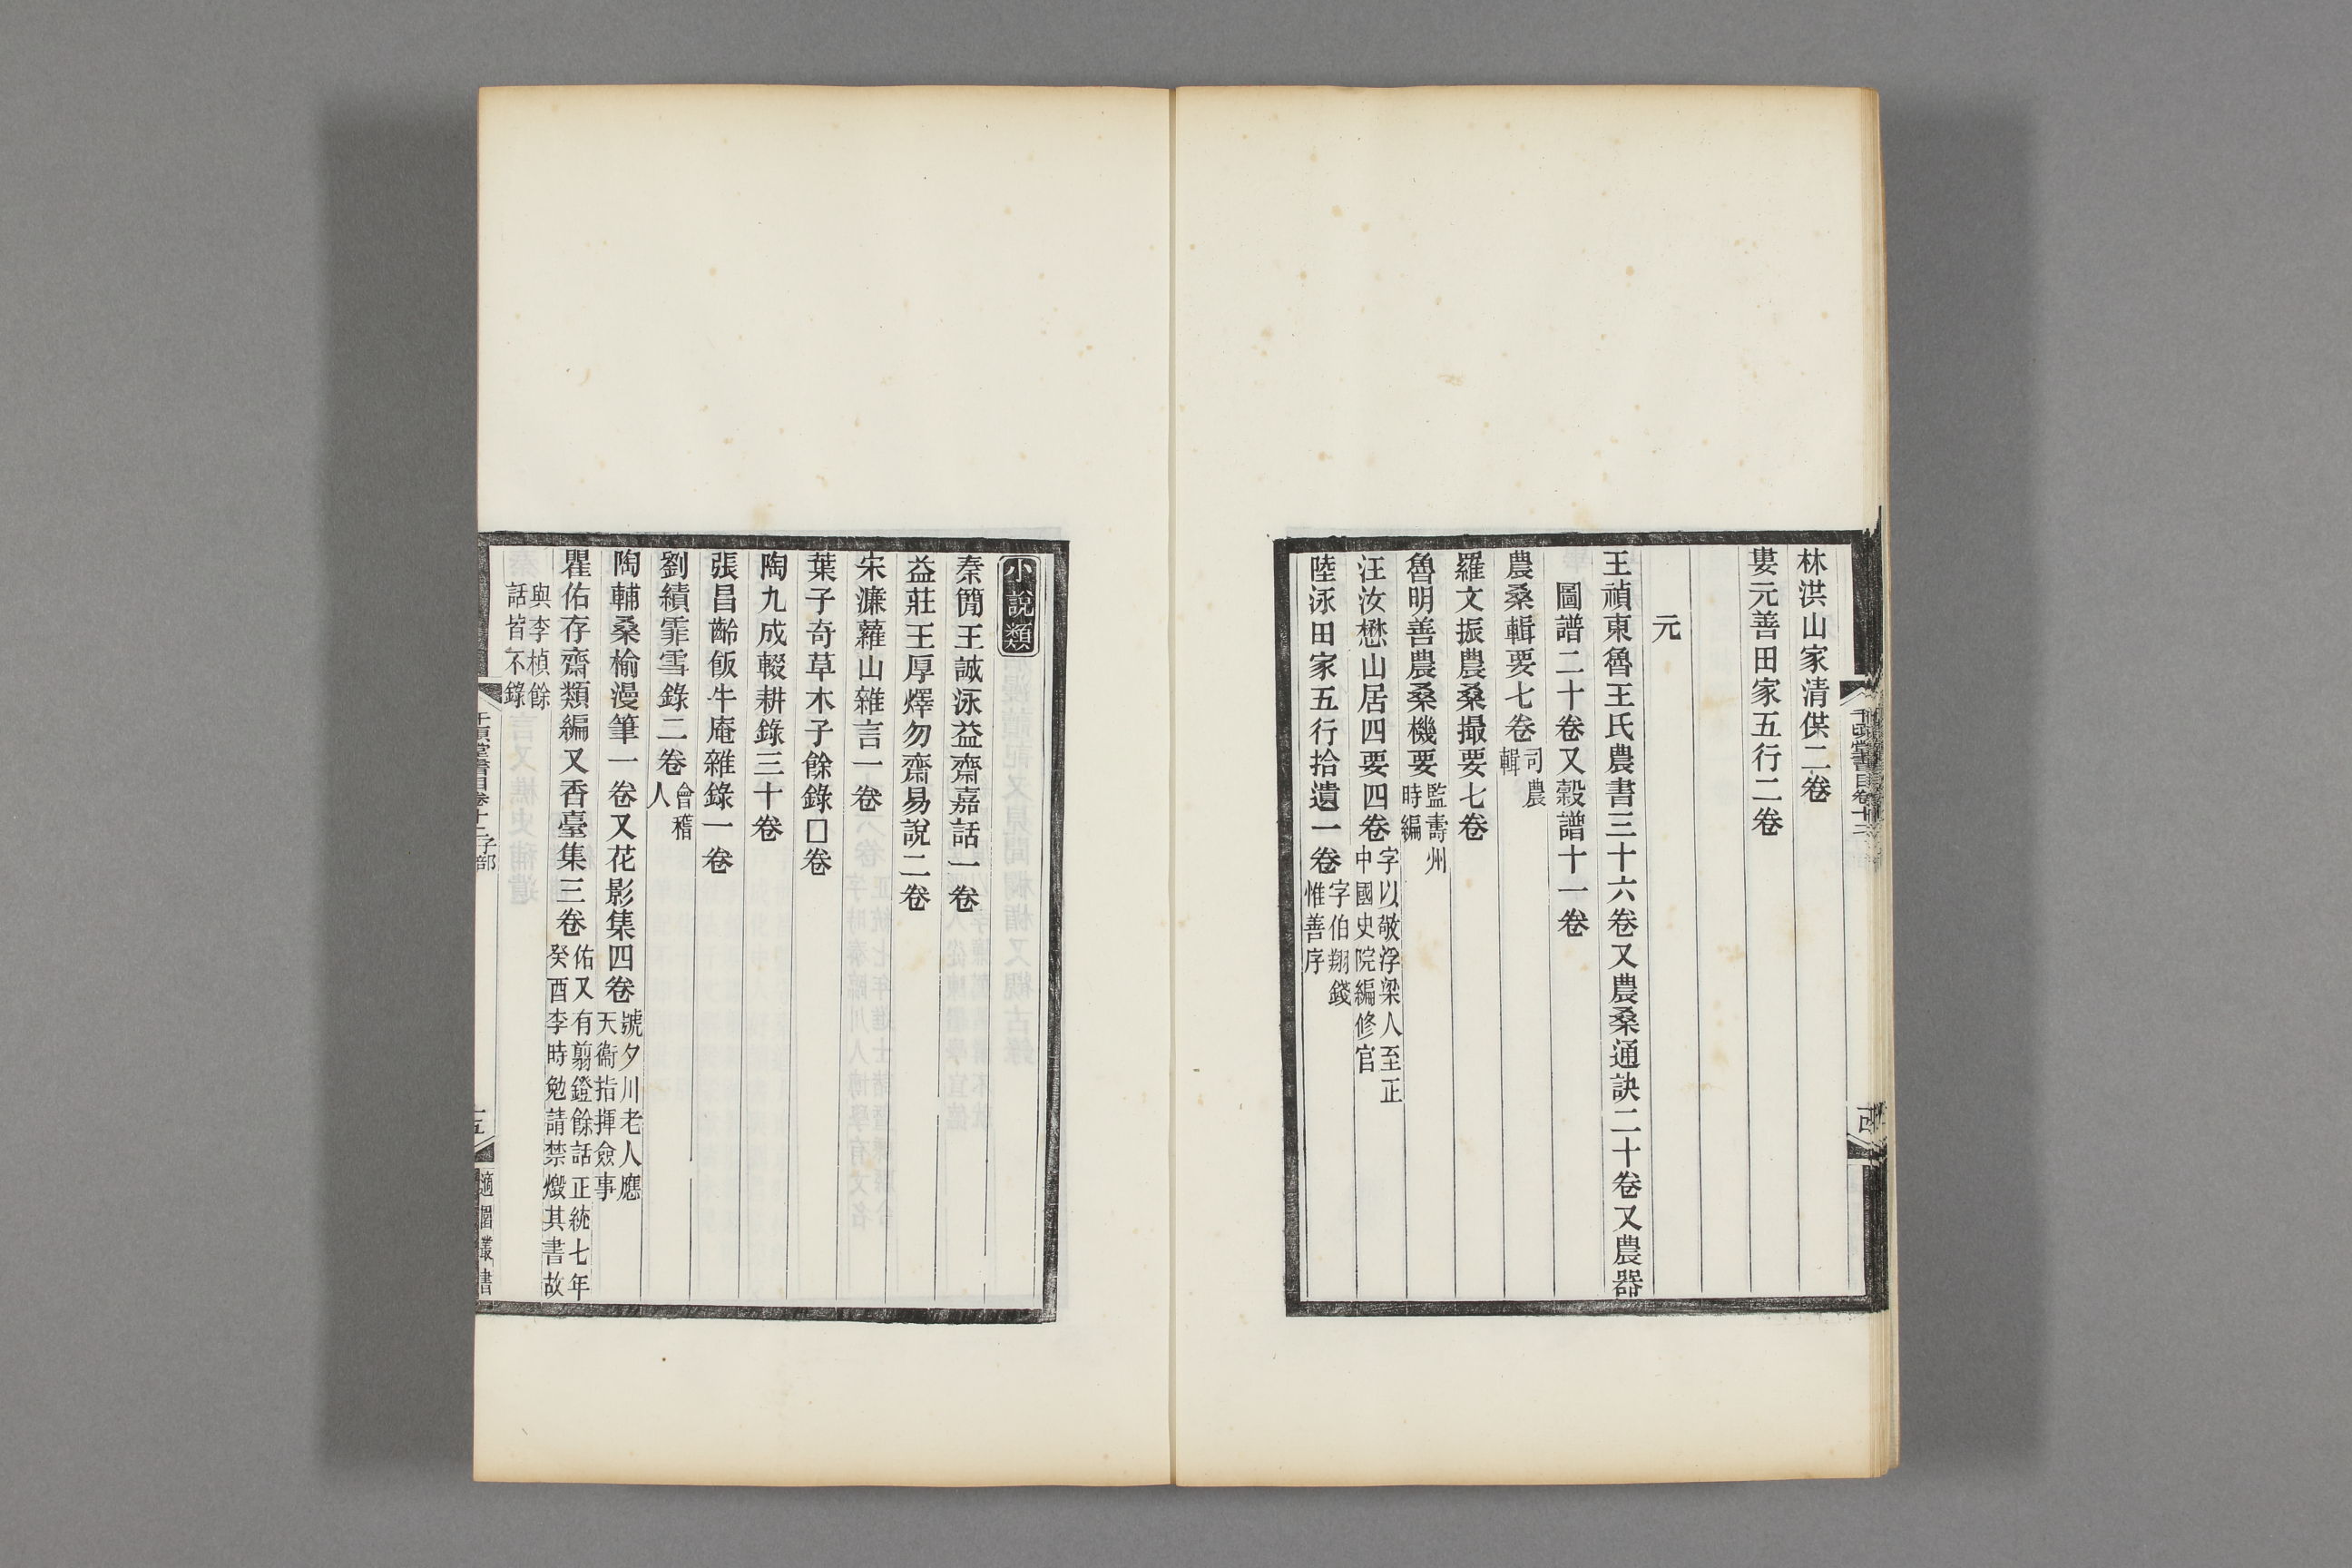 林洪山家清供二卷
婁元善田家五行二卷
元
王禎東魯王氏農書三十六卷又農桑通訣二十卷又農器
圖譜二十卷又穀譜十一卷
農桑輯要七卷司農
輯
羅文振農桑撮要七卷
魯明善農桑機要監壽州
時編
汪汝懋山居四要四卷字以敬浮梁人至正
中國史院編修官
陸泳田家五行拾遺一卷字伯翔錢
惟善序
小說類
秦簡王誠泳益齋嘉話一卷
益莊王厚燁勿齋易說二卷
宋濂蘿山雜言一卷
葉子奇草木子餘錄□卷
陶九成輟耕錄三十卷
張昌齡飯牛庵雜錄一卷
劉績霏雪錄二卷會稽
人
陶輔桑榆漫筆一卷又花影集四卷號夕川老人應
天衞指揮僉事
瞿佑存齋類編又香臺集三卷佑又有翦鐙餘話正統七年
癸酉李時勉請禁燬其書故
與李楨餘
話皆不錄
千頃堂書目卷十二子部
十五
適園叢書